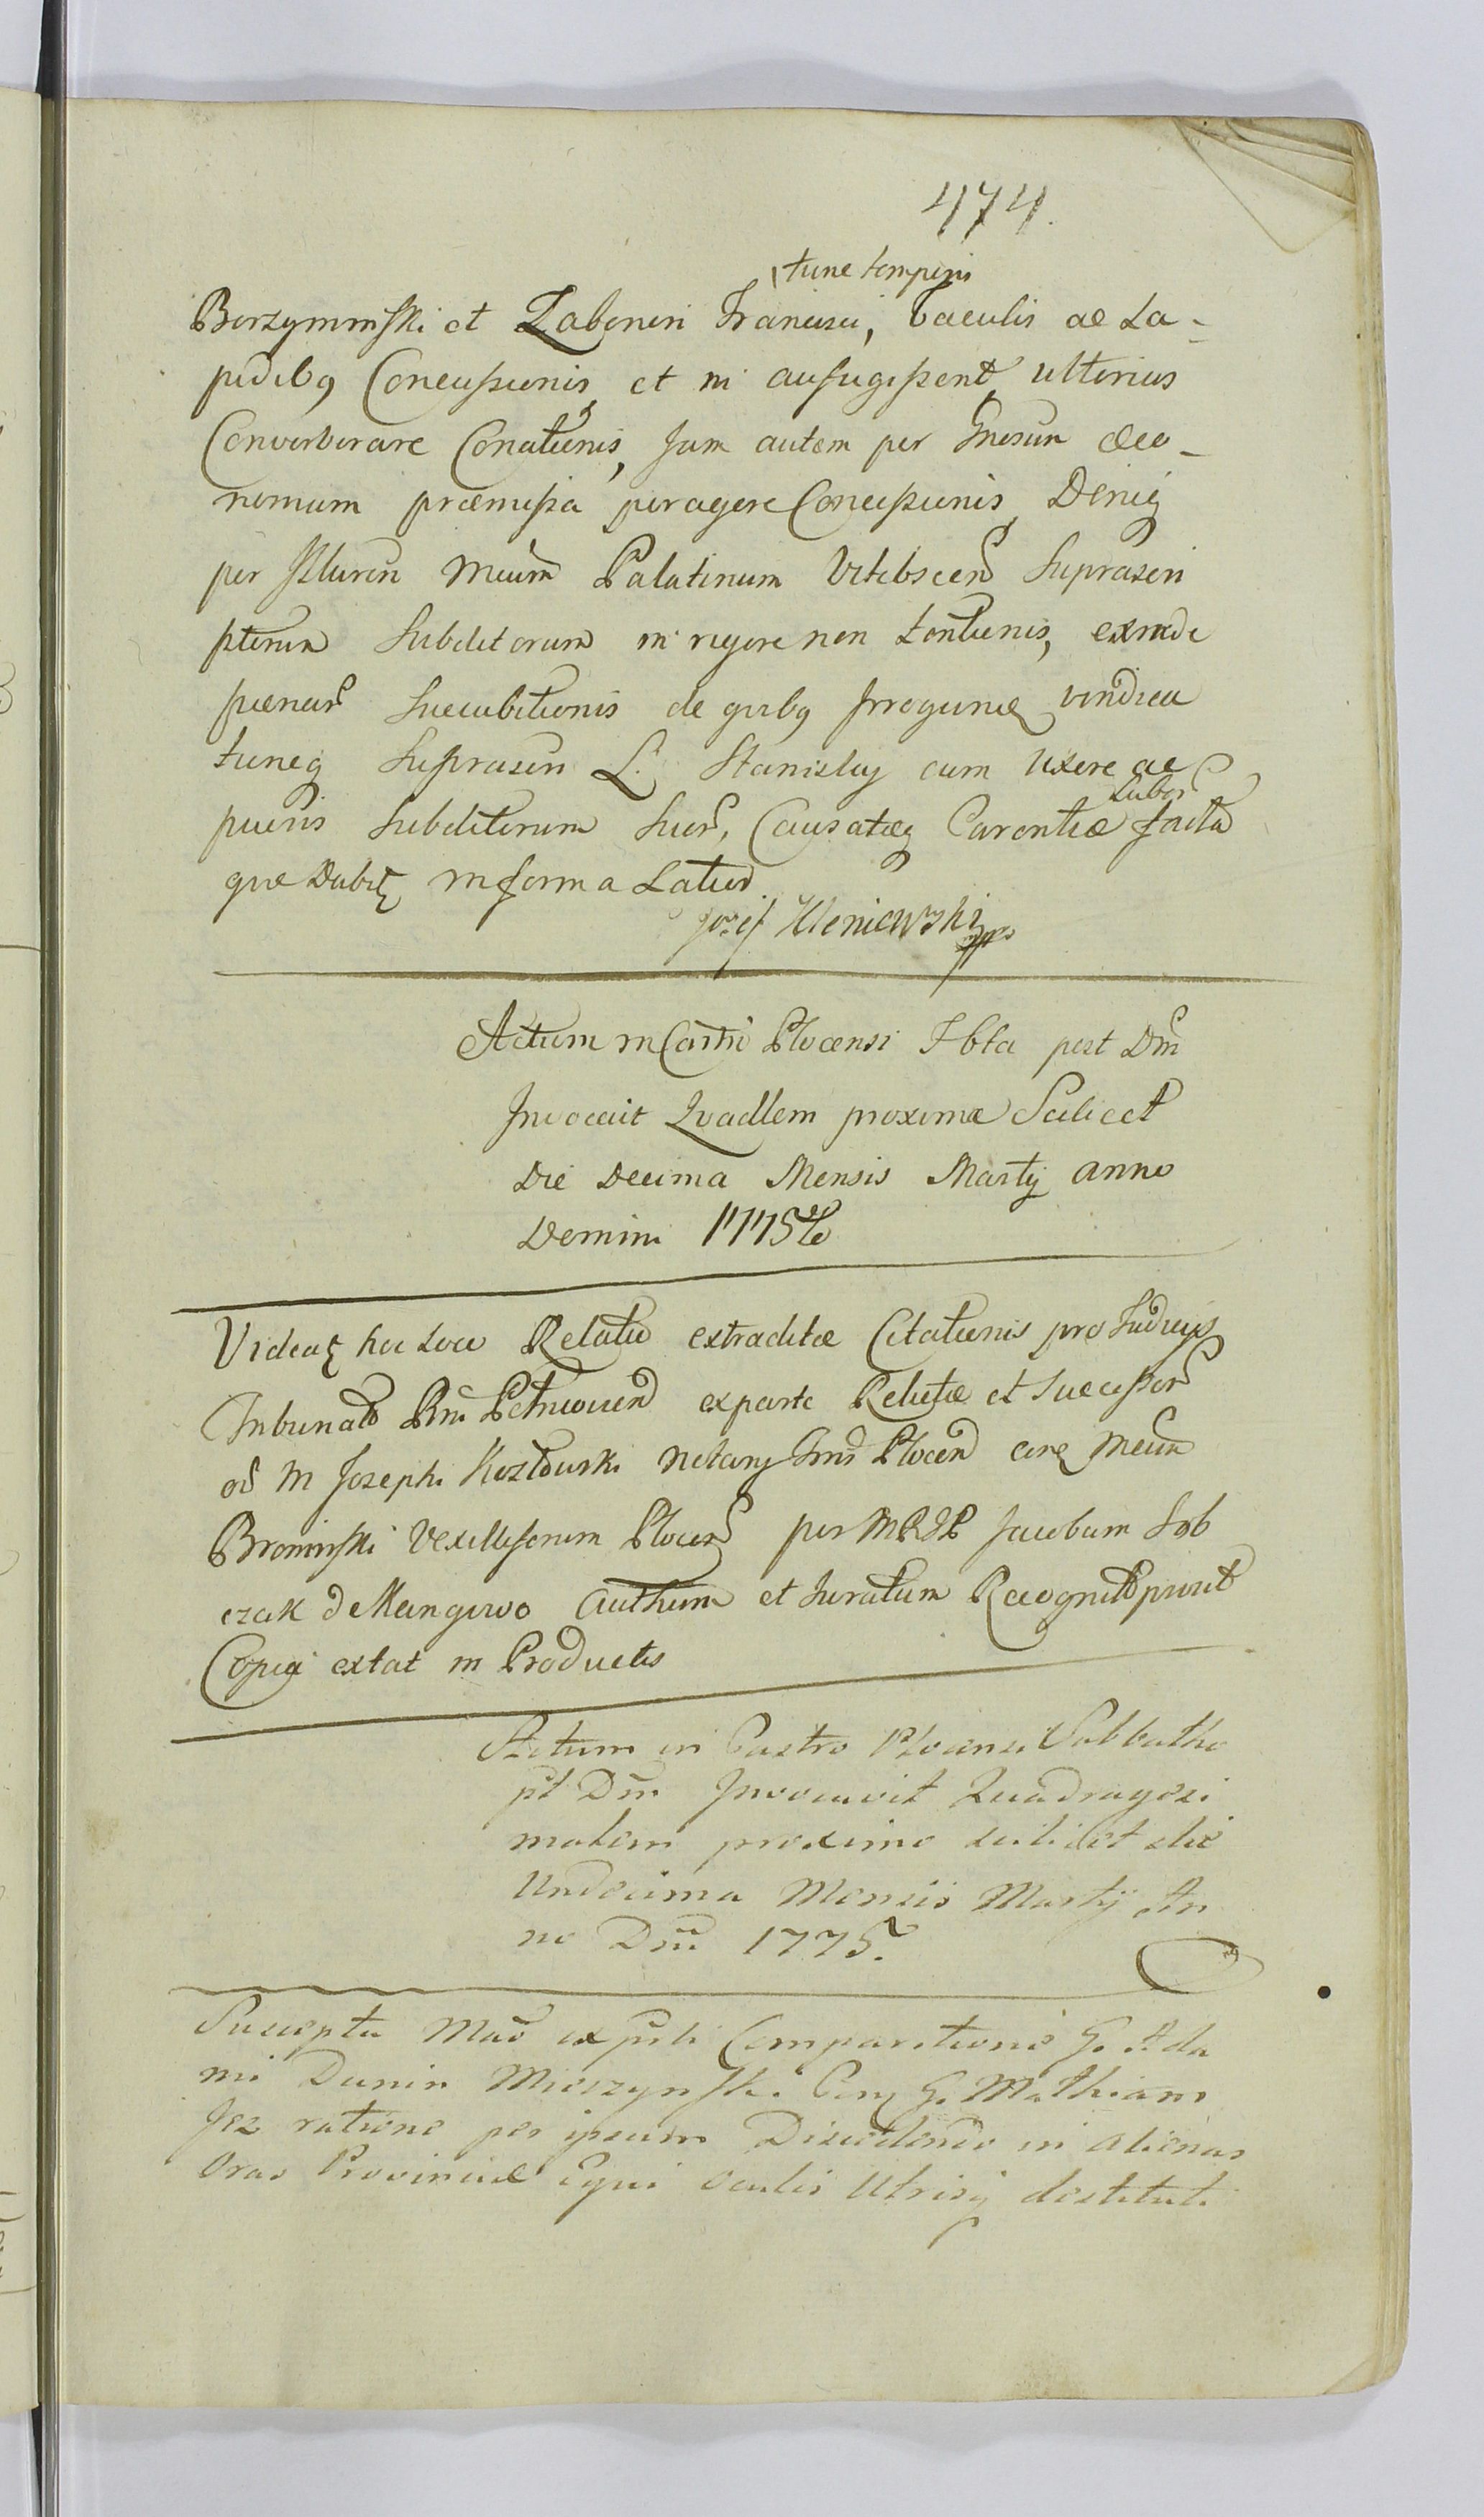 474.
tunc temporis
Borzyminski et Zaboren Francisci, baculis ac La-
pidibq Concussionis et ni aufugissent ulterius
Converberare Conationis, Jam autem per Gnosum Oeco-
nomum præmissa peragere Concussionis Deniq
per Illurem Meum Palatinum Vitebscen Suprascri
ptorum Subditorum in rigore non tentionis, exinde
pænar Succubitionis de quibq Irrogune vindica
tuneq Suprascri L. Stanisly cum Uxore ac
Labor
pueris Subditorum Suor, Causatæq Carentiæ facta
que Dabit in forma Latior
Jozef Kleniewski mpp
Actum in Castro Plocensi Fbta post Dm
Invocavit Qvadlem proxima Scilicet
Die Decima Mensis Martij anno
Domini 1775to
Videat hoc Loco Relatio extraditæ Citationis pro Judicijs
Tribunalb Rni Petricovien ex parte Relictæ et Successor
od M Josephi Kozłowski Notarij Plocen cirq Meum
Brominski Vexilliferum Plocen per MRJP Jacobum Sob
czak de Mangowo Authum et Juratum Recognit prout
Copia extat in Productis
Actum in Castro Plocensi Sabbatho
pt Dm Invocavit Quadragesi
malem proximo scilicet die
Undecima Mensis Martij An
no Dni 1775.
Suscepta Mao ex psti Comparitione G. Ada
mi Dunin Mieszynski Cirq G. Mathiam
Jez ratione per ipsum Discedendo in alienas
Oras Provinciæ Equi oculis Utrisq destituti